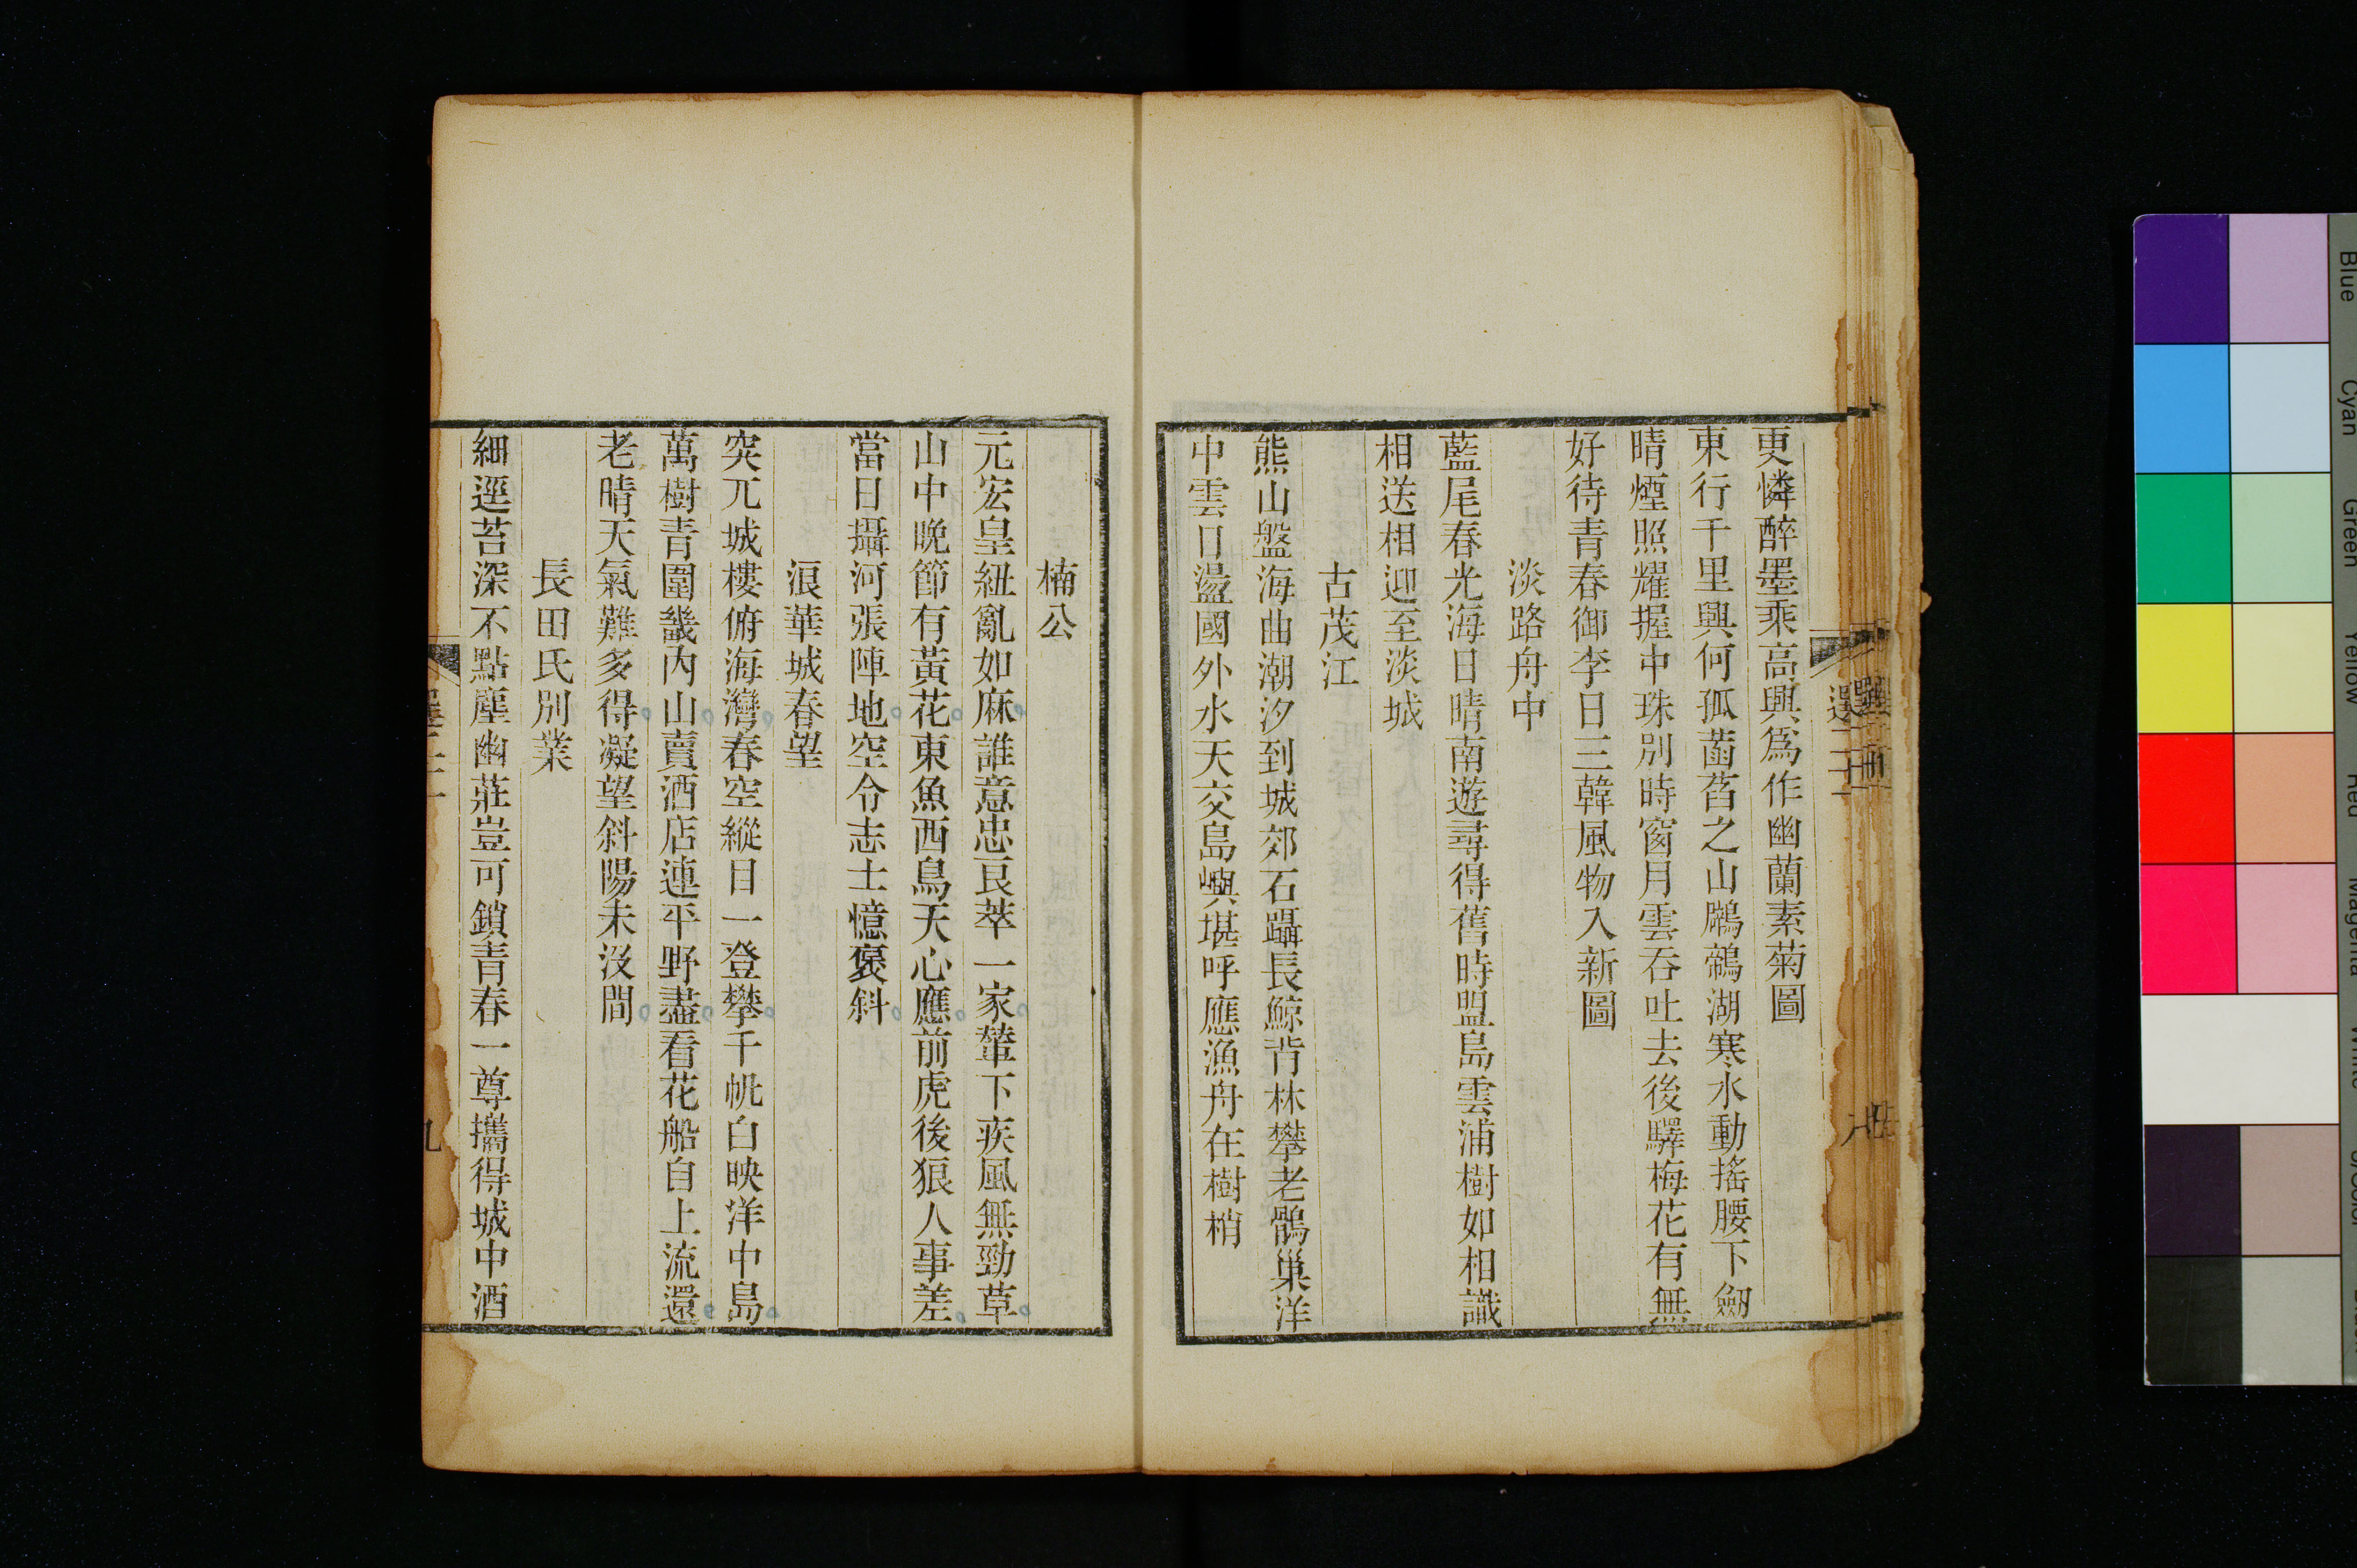 更憐醉墨乘高興爲作幽蘭素菊圖
東行千里興何孤菡萏之山鸊鵜湖寒水動搖腰下劒
晴煙照耀握中珠別時窗月雲吞吐去後驛梅花有無
好待青春御李日三韓風物入新圖
淡路舟中
藍尾春光海日晴南遊尋得舊時盟島雲浦樹如相識
相送相迎至淡城
古茂江
熊山盤海曲潮汐到城郊石躡長鯨背林攀老鶻巢洋
中雲日盪國外水天交島嶼堪呼應漁舟在樹梢
楠公
元宏皇紐亂如麻誰意忠良萃一家輦下疾風無勁草
山中晚節有黃花東魚西鳥天心應前虎後狼人事差
當日攝河張陣地空令志士憶褒斜
浪華城春望
突兀城樓俯海灣春空縱目一登攀千帆白映洋中島
萬樹青圍畿內山賣酒店連平野盡看花船自上流還
老晴天氣難多得凝望斜陽未沒間
長田氏別業
細逕苔深不點塵幽莊豈可鎖青春一尊攜得城中酒
Blue
Cyan
Green
Yellow
Red
Magenta
White